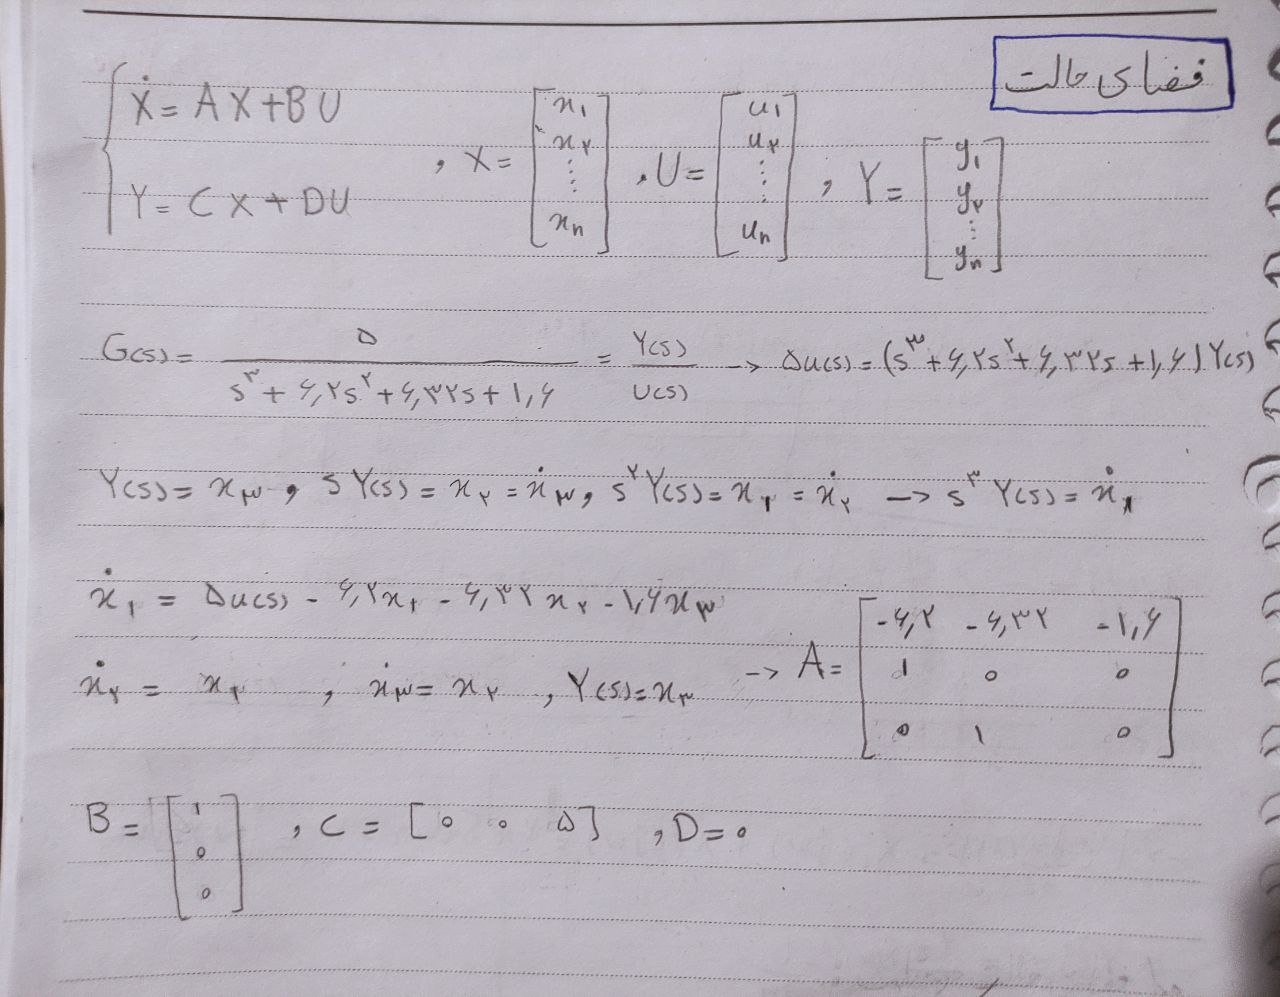 فضای حالت
Ẋ = AX + BU
Y = CX + DU
, X = [x۱ x۲ ⋮ xn] , U = [u۱ u۲ ⋮ un] , Y = [y۱ y۲ ⋮ yn]
G(s) = ۵ / (s^۳ + ۶,۲s^۲ + ۶,۳۲s + ۱,۶) = Y(s) / U(s) → ۵u(s) = (s^۳ + ۶,۲s^۲ + ۶,۳۲s + ۱,۶) Y(s)
Y(s) = x۳ , sY(s) = x۲ = ẋ۳ , s^۲Y(s) = x۱ = ẋ۲ → s^۳Y(s) = ẋ۱
ẋ۱ = ۵u(s) - ۶,۲x۱ - ۶,۳۲x۲ - ۱,۶x۳
ẋ۲ = x۱ , ẋ۳ = x۲ , Y(s) = x۳ → A = [-۶,۲ -۶,۳۲ -۱,۶
۱ ۰ ۰
۰ ۱ ۰]
B = [۱ ۰ ۰] , C = [۰ ۰ ۵] , D = ۰